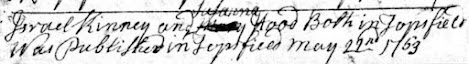 Israel Kinney and Susanna Hood Both in Topsfield
Was Published in Topsfield May 22nd 1763